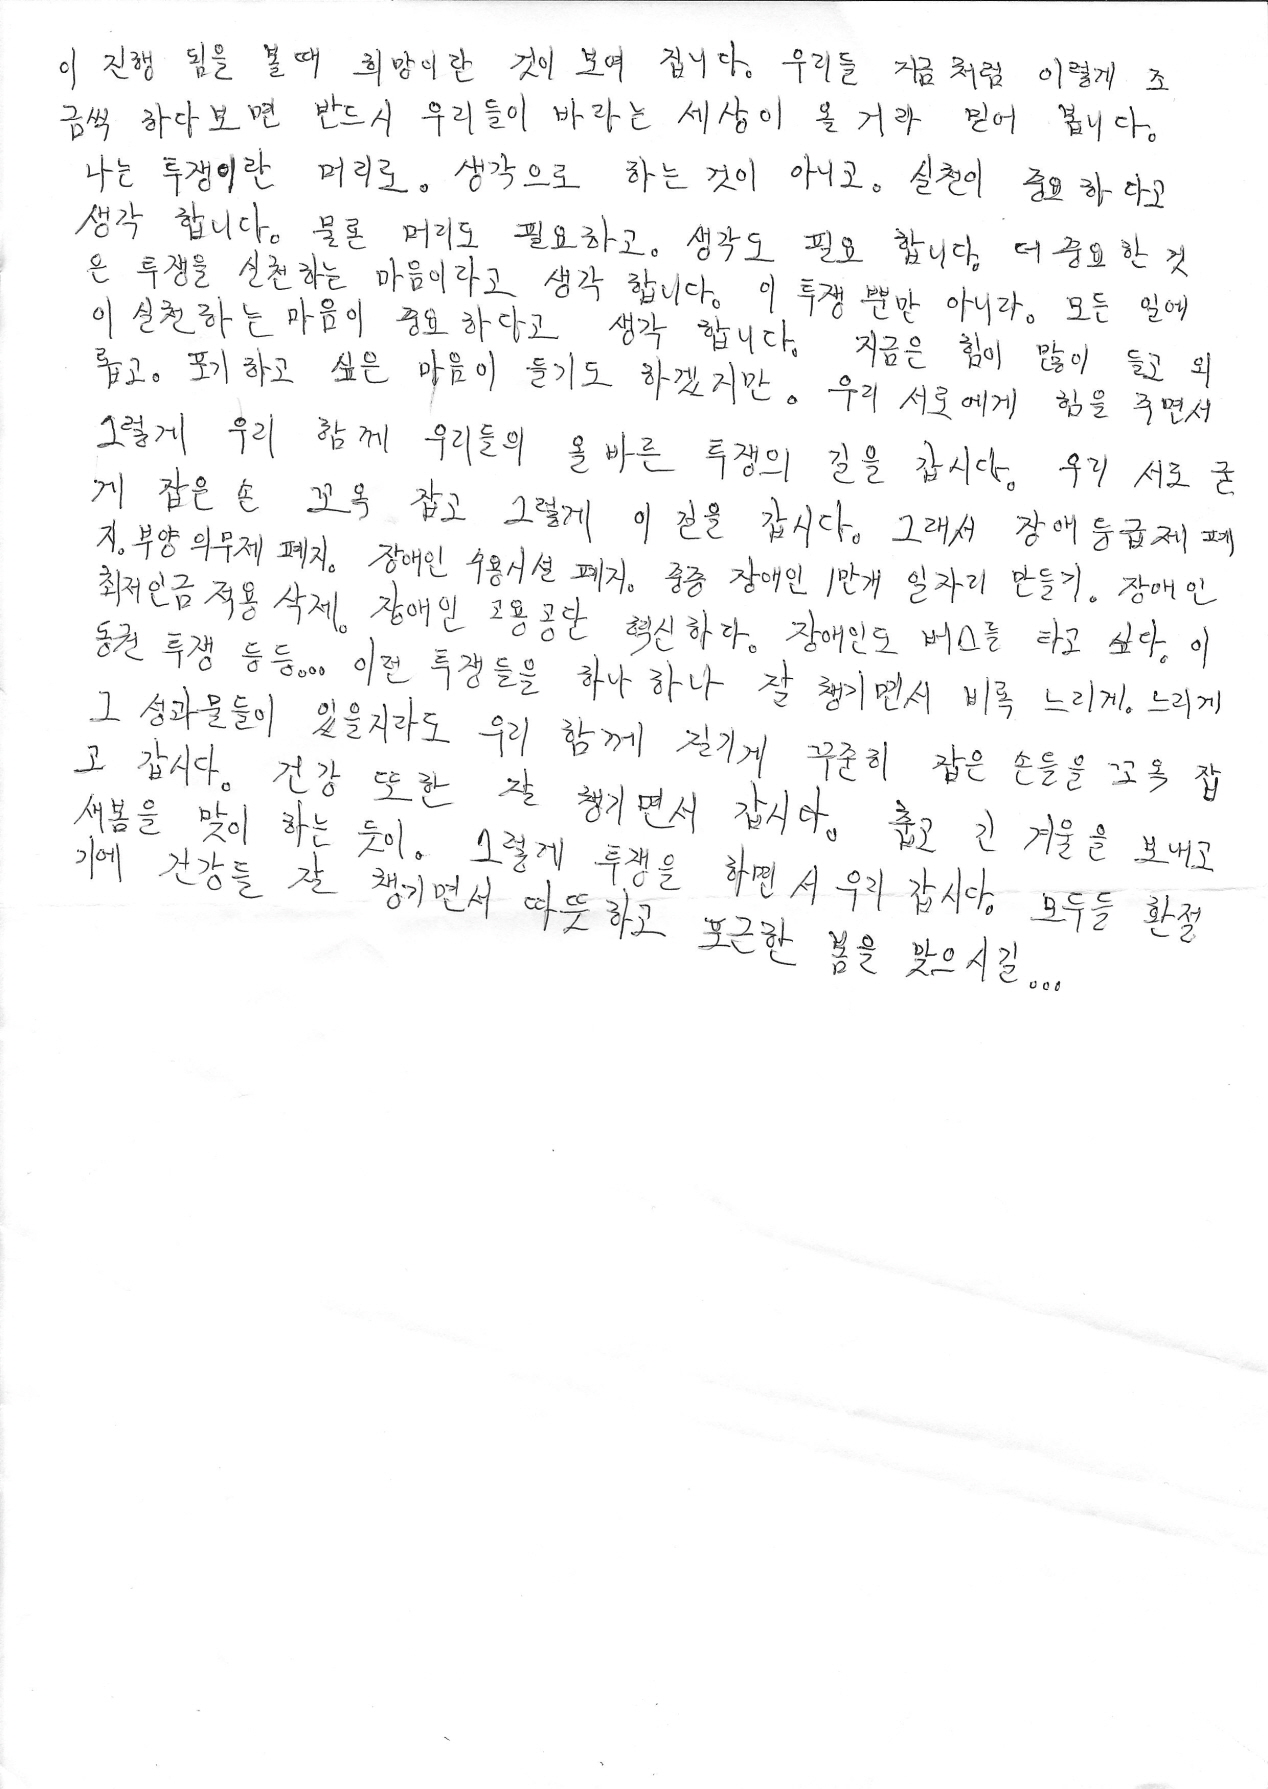 이 진행 됨을 볼때 희망이란 것이 보여 집니다. 우리들 지금처럼 이렇게 조
금씩 하다보면 반드시 우리들이 바라는 세상이 올거라 믿어 봅니다.
나는 투쟁이란 머리로. 생각으로 하는것이 아니고. 실천이 중요하다고
생각 합니다. 물론 머리도 필요하고. 생각도 필요 합니다. 더 중요한 것
은 투쟁을 실천하는 마음이라고 생각 합니다. 이 투쟁 뿐만 아니라. 모든 일에
이 실천하는 마음이 중요하다고 생각 합니다. 지금은 힘이 많이 들고 외
롭고. 포기하고 싶은 마음이 들기도 하겠지만. 우리 서로에게 힘을 주면서
그렇게 우리 함께 우리들의 올바른 투쟁의 길을 갑시다. 우리 서로 굳
게 잡은 손 꼬옥 잡고 그렇게 이 길을 갑시다. 그래서 장애 등급제 폐
지. 부양 의무제 폐지. 장애인 수용시설 폐지. 중증 장애인 1만개 일자리 만들기. 장애인
최저인금 적용 삭제. 장애인 고용공단 혁신하다. 장애인도 버스를 타고 싶다. 이
동권 투쟁 등등... 이런 투쟁들을 하나 하나 잘 챙기면서 비록 느리게. 느리게
그 성과물들이 있을지라도 우리 함께 질기게 꾸준히 잡은 손들을 꼬옥 잡
고 갑시다. 건강 또한 잘 챙기면서 갑시다. 춥고 긴 겨울을 보내고
새봄을 맞이 하는 듯이. 그렇게 투쟁을 하면서 우리 갑시다. 모두들 환절
기에 건강들 잘 챙기면서 따뜻하고 포근한 봄을 맞으시길...